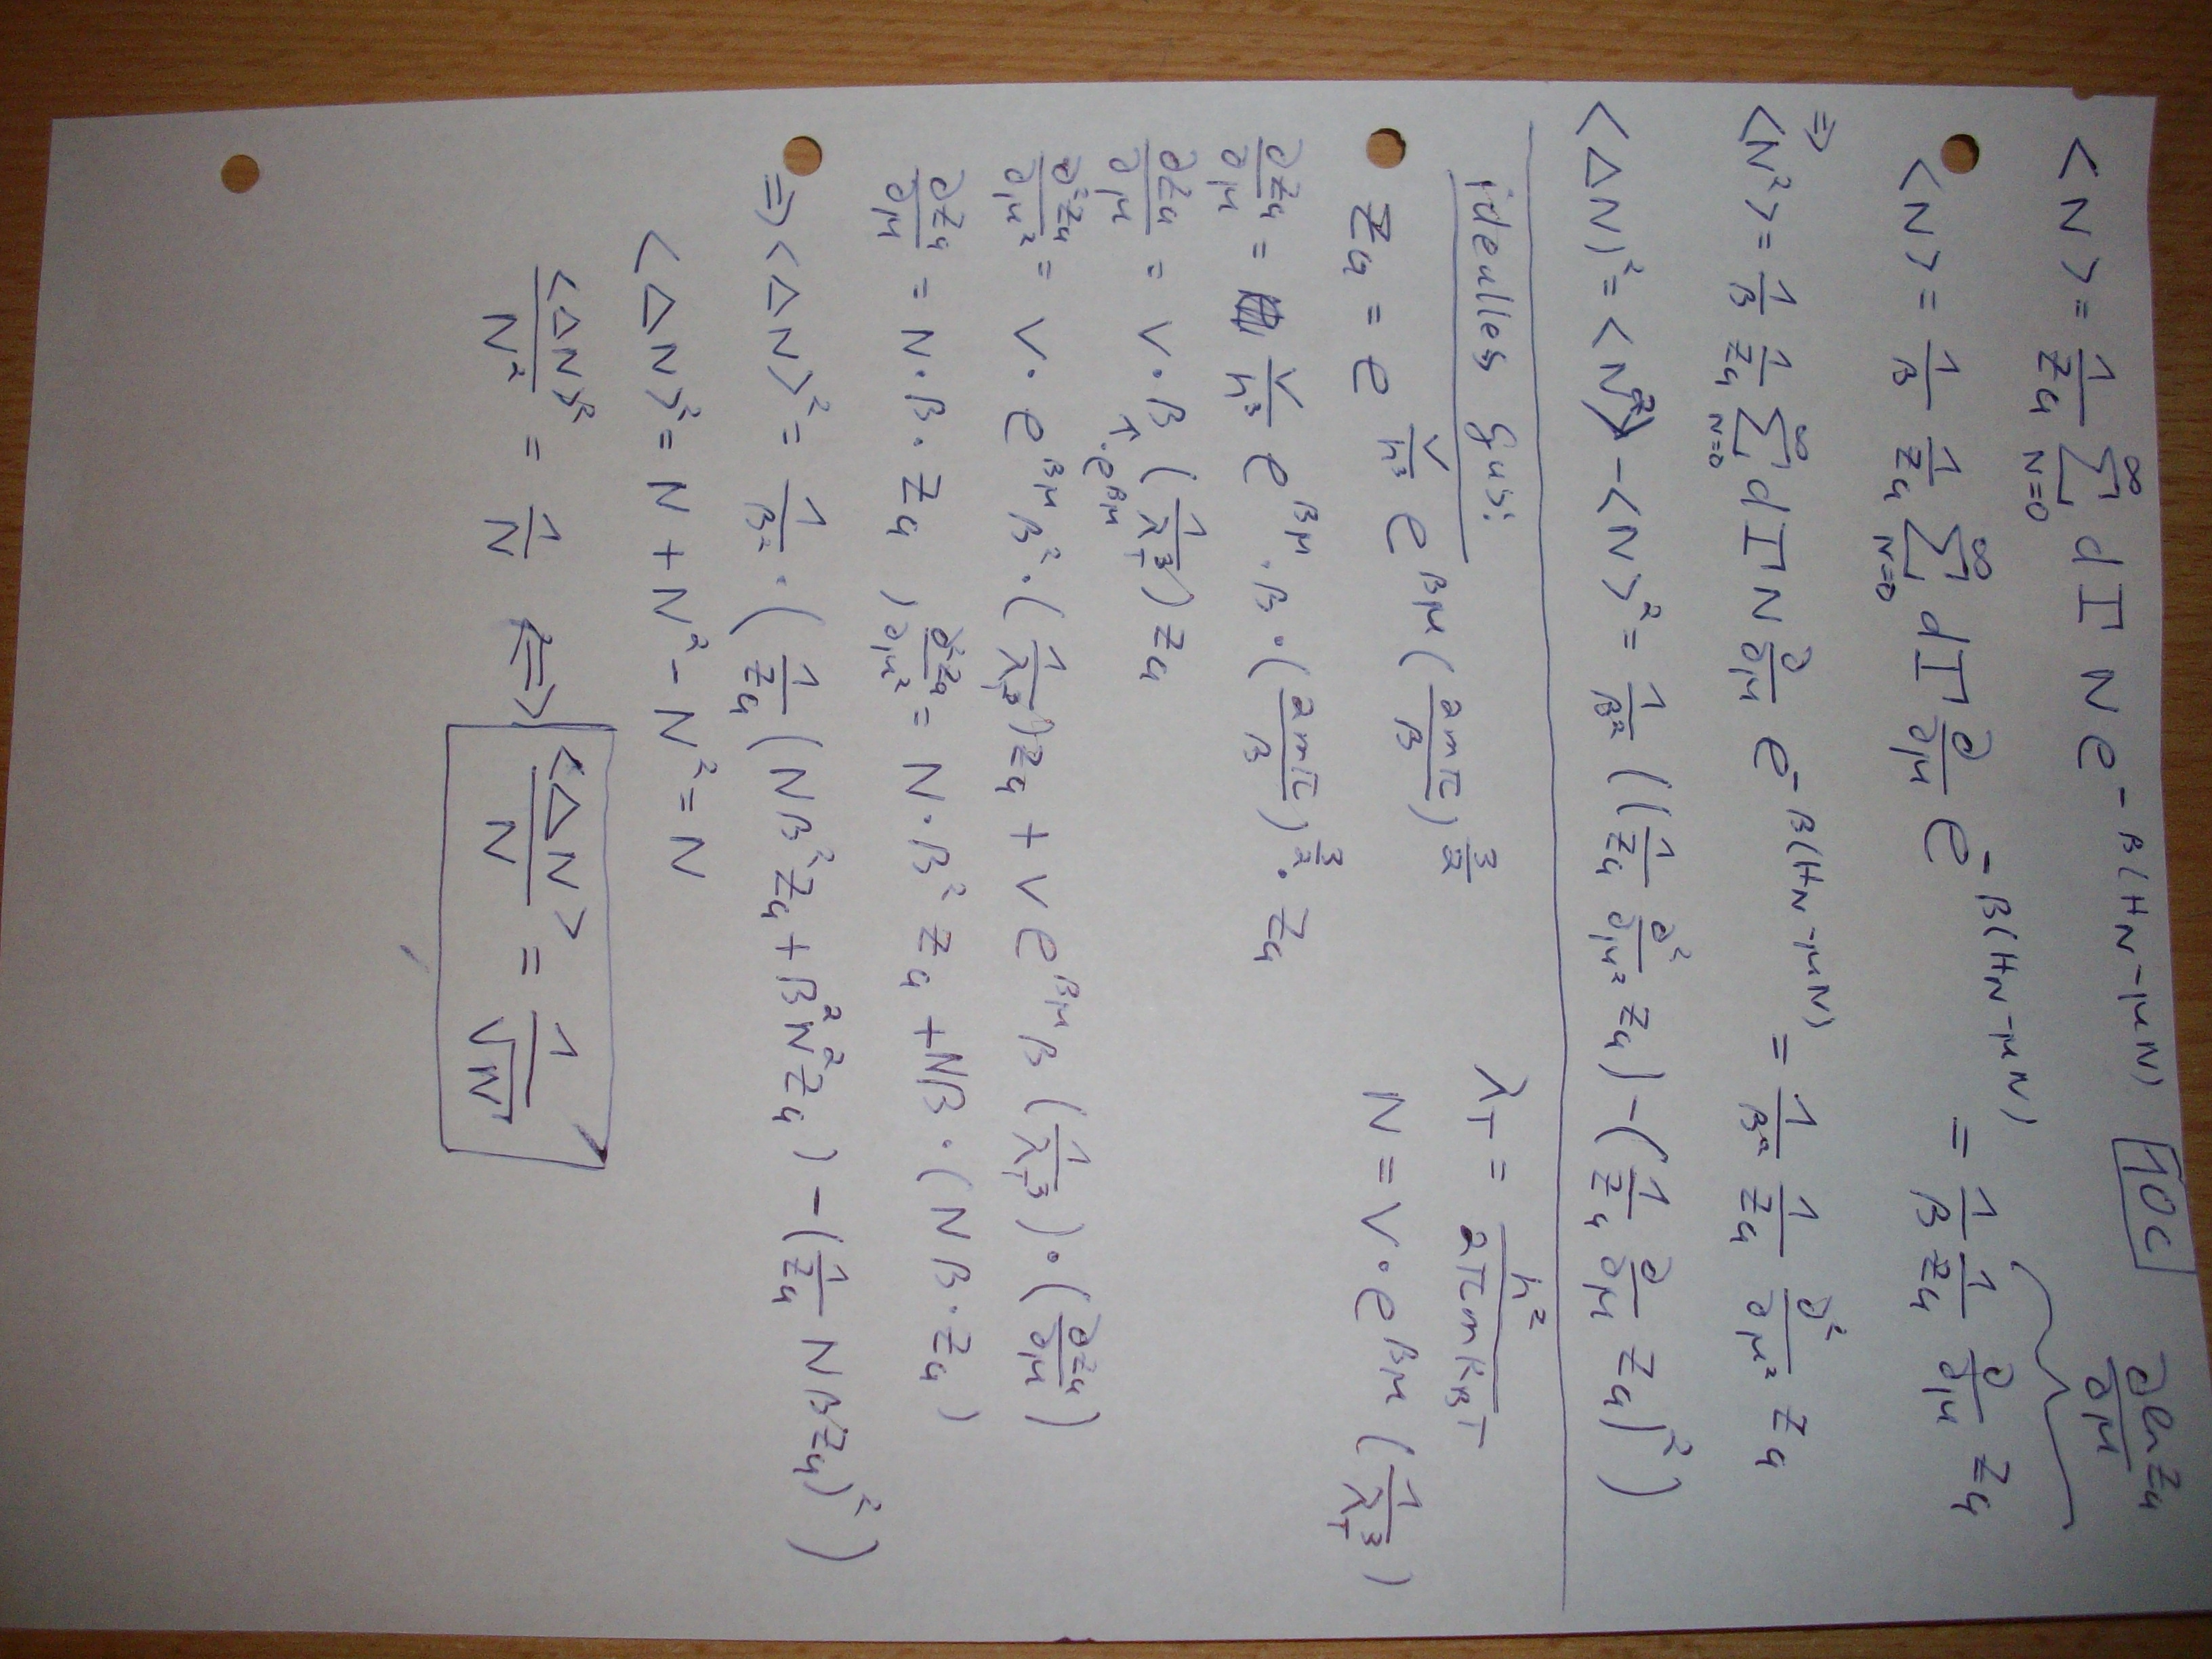 10c
<N> = 1/Z_G ∑_{N=0}^∞ dΓ N e^{-β(H_N-μN)} ∂ln Z_G/∂μ
<N> = 1/β 1/Z_G ∑_{N=0}^∞ dΓ ∂/∂μ e^{-β(H_N-μN)} = 1/β 1/Z_G ∂/∂μ Z_G
=> <N²> = 1/β 1/Z_G ∑_{N=0}^∞ dΓ N ∂/∂μ e^{-β(H_N-μN)} = 1/β² 1/Z_G ∂²/∂μ² Z_G
<ΔN)² = <N²> - <N>² = 1/β² ((1/Z_G ∂²/∂μ² Z_G) - (1/Z_G ∂/∂μ Z_G)²)
ideales gas: λ_T = h²/2πmk_BT
Z_G = e^{V/h³ e^{βμ} (2mπ/β)^{3/2}} N = V · e^{βμ} (1/λ_T³)
∂Z_G/∂μ = V/h³ e^{βμ} · β · (2mπ/β)^{3/2} · Z_G
∂Z_G/∂μ = V · β (1/λ_T³) Z_G
↑ · e^{βμ}
∂²Z_G/∂μ² = V · e^{βμ} β² · (1/λ_T³) Z_G + V e^{βμ} β (1/λ_T³) · (∂Z_G/∂μ)
∂Z_G/∂μ = N · β · Z_G , ∂²Z_G/∂μ² = N · β² Z_G + Nβ · (Nβ · Z_G)
=> <ΔN>² = 1/β² · (1/Z_G (Nβ² Z_G + β² N² Z_G) - (1/Z_G Nβ Z_G)²)
<ΔN>² = N + N² - N² = N
<ΔN>²/N² = 1/N <=> <ΔN>/N = 1/√N